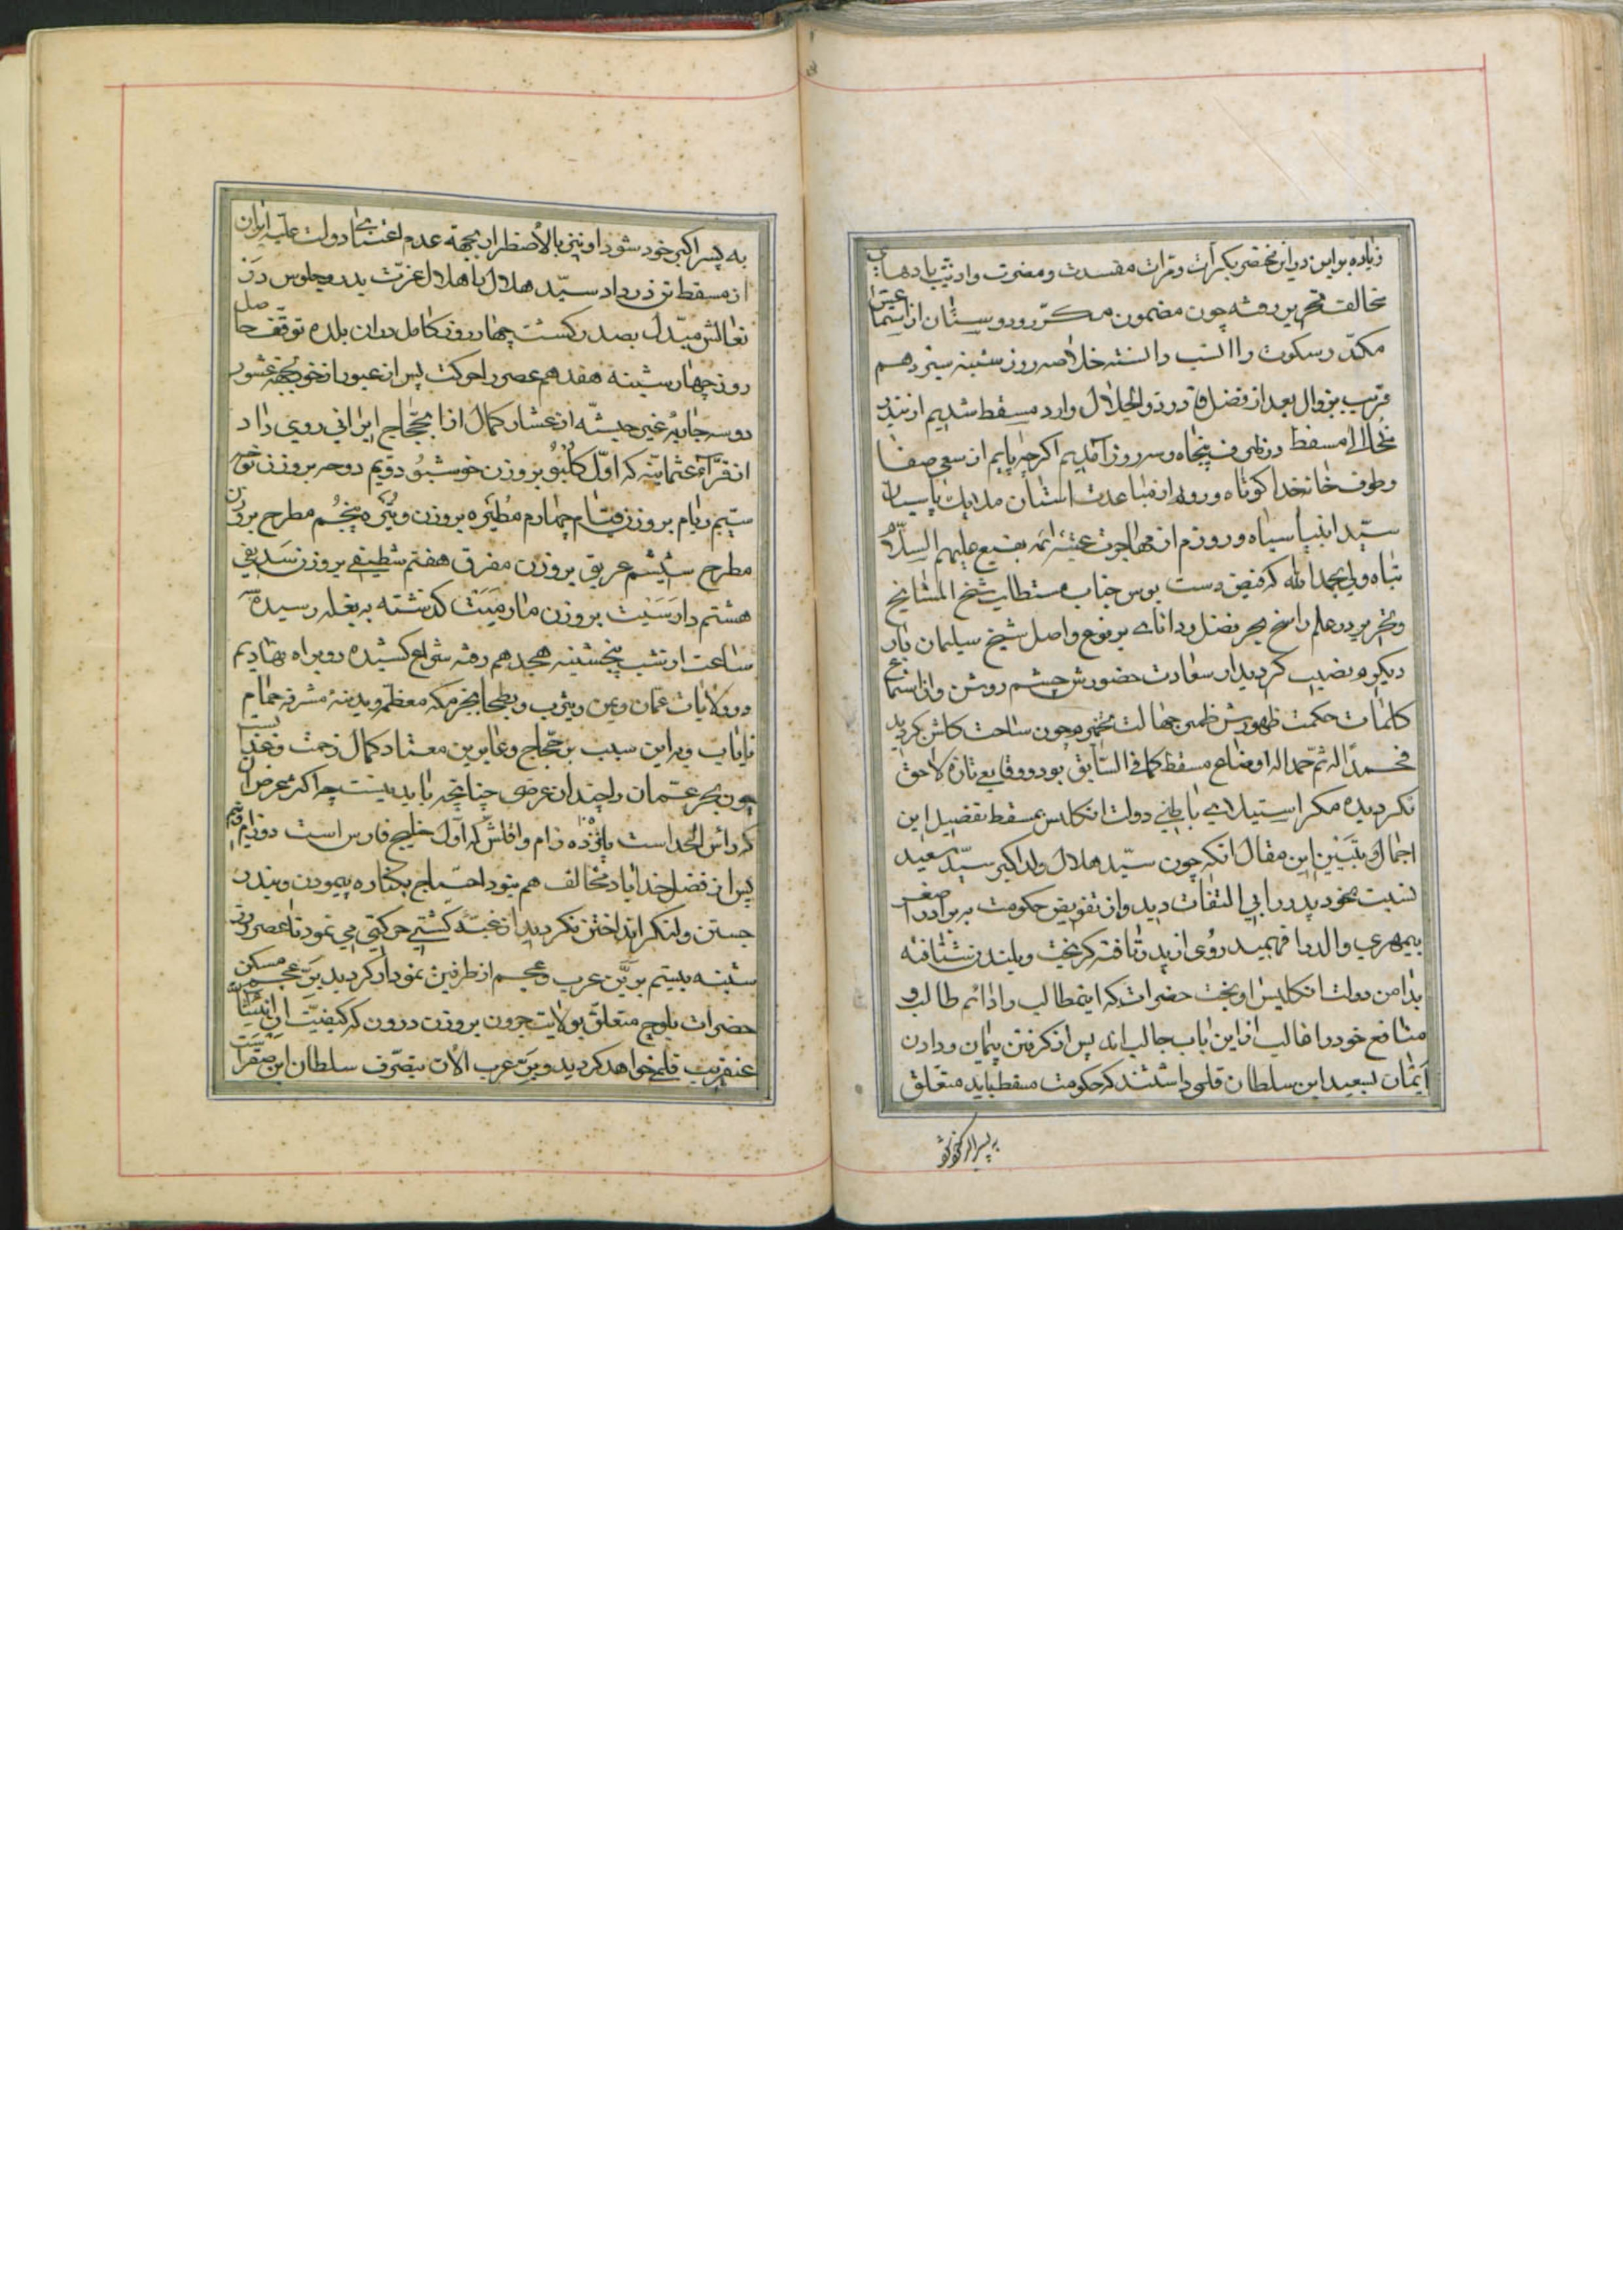 زیاده بر این در این مختصر بکرات و مرات مفسدت و مضرت واذیت بادهای
مخالف تحریر رفته چون مضمون مکرر ور وستان از استماعش
مکدر سکوت را انسب دانسته خلاصه روز شنبه سیزدهم
قریب بزوال بعد از فضل قادر ذوالجلال وارد مسقط شدیم از بندر
مخا الی مسقط در پنجاه و سه روز آمدیم اگر چه پایم از سعی صفا
و طوف خانه خدا کوتاه و رویم از مباعدت استان ملایک پاسبان
سید انبیا سیاه و روزم از مهاجرت عتبه ائمه بقیع علیهم السلام
تباه ولی بحمدالله که فیض دست بوس جناب مستطاب شیخ المشایخ
و نحریر در علم راسخ بحر فضل و دانای بر فرع و اصل شیخ سلیمان بار
دیگرم نصیب گردید از سعادت حضورش چشم روشن و از استماع
کلمات حکمت ظهورش ظلمی جهالت ضمیرم چون ساحت گلشن گردید
فحمدا له ثم حمدا له اوضاع مسقط کما فی السابق بود و وقایع تازه لاحق
نگردیده مگر استیلای باطنی دولت انگلیس بمسقط تفصیل این
اجمال و تبیین این مقال انکه چون سید هلال ولد اکبر سید سعید
نسبت بخود پدر را بی التفات دید و از تفویض حکومت به برادر اصغر
بیمهری والد را فهمید روی از پدر تافته گریخت و بلندن شتافته
بدامن دولت انگلیس اویخت حضرات که اینمطالب را دائم طالب و
منافع خود را غالب از این باب جالب اند پس از گرفتن پیمان و دادن
ایمان بسعید ابن سلطان قلمی داشتند که حکومت مسقط باید متعلق
به پسر اکبر خود شود
به پسر اکبر خود شود او نیز بالاضطرار بجهة عدم اعتنای دولت علیه ایران
از مسقط تن در داد سید هلال با هلال عزت بدر و جلوس در
نعالش مبدل بصدر گشت چهار روز کامل در ان بلده توقف حاصل
روز چهار شنبه هفدهم عصر را حرکت پس از عبور از خود بجهة عشور
دو سه جاریه غیر حبشه از عشار کمال اذا بحجاج ایرانی روی داد
از قراء عمانیه که اول کلبو بروزن خوشبو دویم دوحه بروزن نوحه
سیم ریام بروزن قیام چهارم مطیره بروزن و پنجم مطرح بروزن
مطرح ششم عریق بروزن مفرق هفتم شطیفی بروزن سدیفی
هشتم دارسیت بروزن مارمیت گذشته به بغله رسیده
ساعت از شب پنجشنبه هجدهم رفته شراع کشیده رو براه نهادیم
در ولایات عمان و یمن و یثرب و بطحا بجز مکه معظمه و مدینه مشرفه حمام
نایاب و به این سبب بر حجاج و عابرین معتاد کمال زحمت و تعب است
چون بحر عمان را چندان عرضی چنانچه باید نیست چه اکثر عرض ان
که راس الحد است پانزده زام و اقلش که اول خلیج فارس است دو زام و نیم
پس از فضل خدا باد مخالف هم بنود احتیاج بکناره پیمودن و بندر
جستن و لنگر انداختن نگردید از غبه کشتی حرکتی می نمود تا عصر روز
شنبه بیستم برین عرب و عجم از طرفین نمودار گردید بر عجم مسکن
حضرات بلوچ متعلق بولایت جرون بروزن درون که کیفیت ان انشاءالله
عنقریب قلمی خواهد گردید و بر عرب الان بتصرف سلطان ابن صقر است